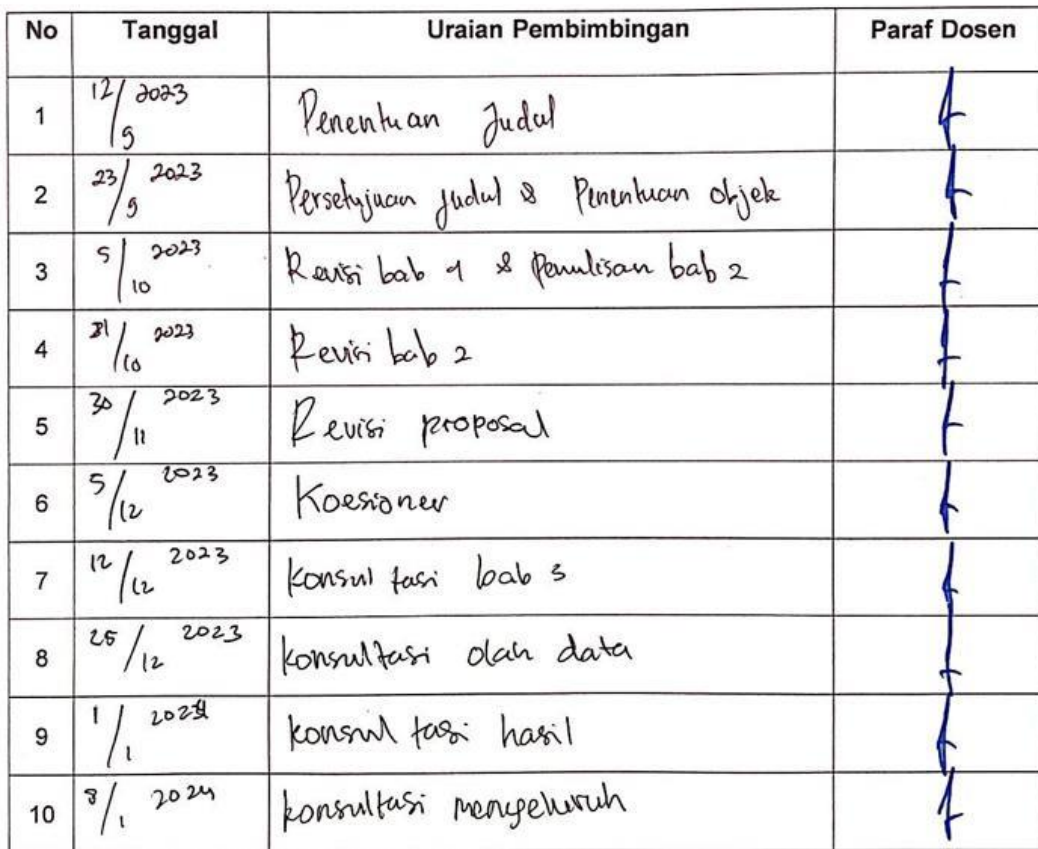 No Tanggal Uraian Pembimbingan Paraf Dosen
1 12/9 2023 Penentuan Judul
2 23/9 2023 Persetujuan Judul & Penentuan objek
3 5/10 2023 Revisi bab 1 & Penulisan bab 2
4 31/10 2023 Revisi bab 2
5 30/11 2023 Revisi proposal
6 5/12 2023 Koesioner
7 12/12 2023 konsultasi bab 3
8 25/12 2023 konsultasi olah data
9 1/1 2024 konsultasi hasil
10 8/1 2024 konsultasi menyeluruh